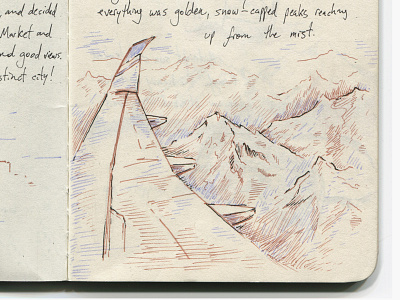 , and decided
Market and
nd good views.
stinct city!
everything was golden, snow-capped peaks reaching
up from the mist.